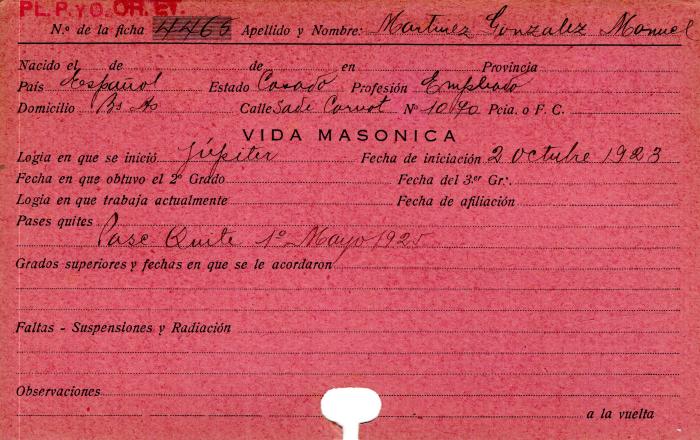 PL. P. y O. OR. ET.
N.º de la ficha 4466 Apellido y Nombre: Martinez Gonzalez Manuel
Nacido el de de en Provincia
País Español Estado Casado Profesión Empleado
Domicilio Bs As Calle Sadi Carnot Nº 1090 Pcia. o F. C.
VIDA MASONICA
Logia en que se inició Júpiter Fecha de iniciación 2 octubre 1923
Fecha en que obtuvo el 2º Grado Fecha del 3.er Gr:.
Logia en que trabaja actualmente Fecha de afiliación
Pases quites
Pase Quite 1º Mayo 1925
Grados superiores y fechas en que se le acordaron
Faltas - Suspensiones y Radiación
Observaciones
a la vuelta